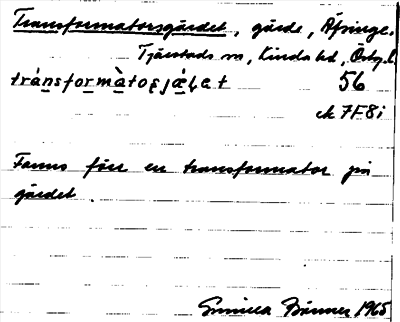 Transformatorsgärdet, gärde, Åsinge.
Tjärstads sn, Kinda hd, Östg.l.
transformatoʂjæɖet 56
ek 7F8i
Fanns förr en transformator på
gärdet.
Gunilla Bänner 1965